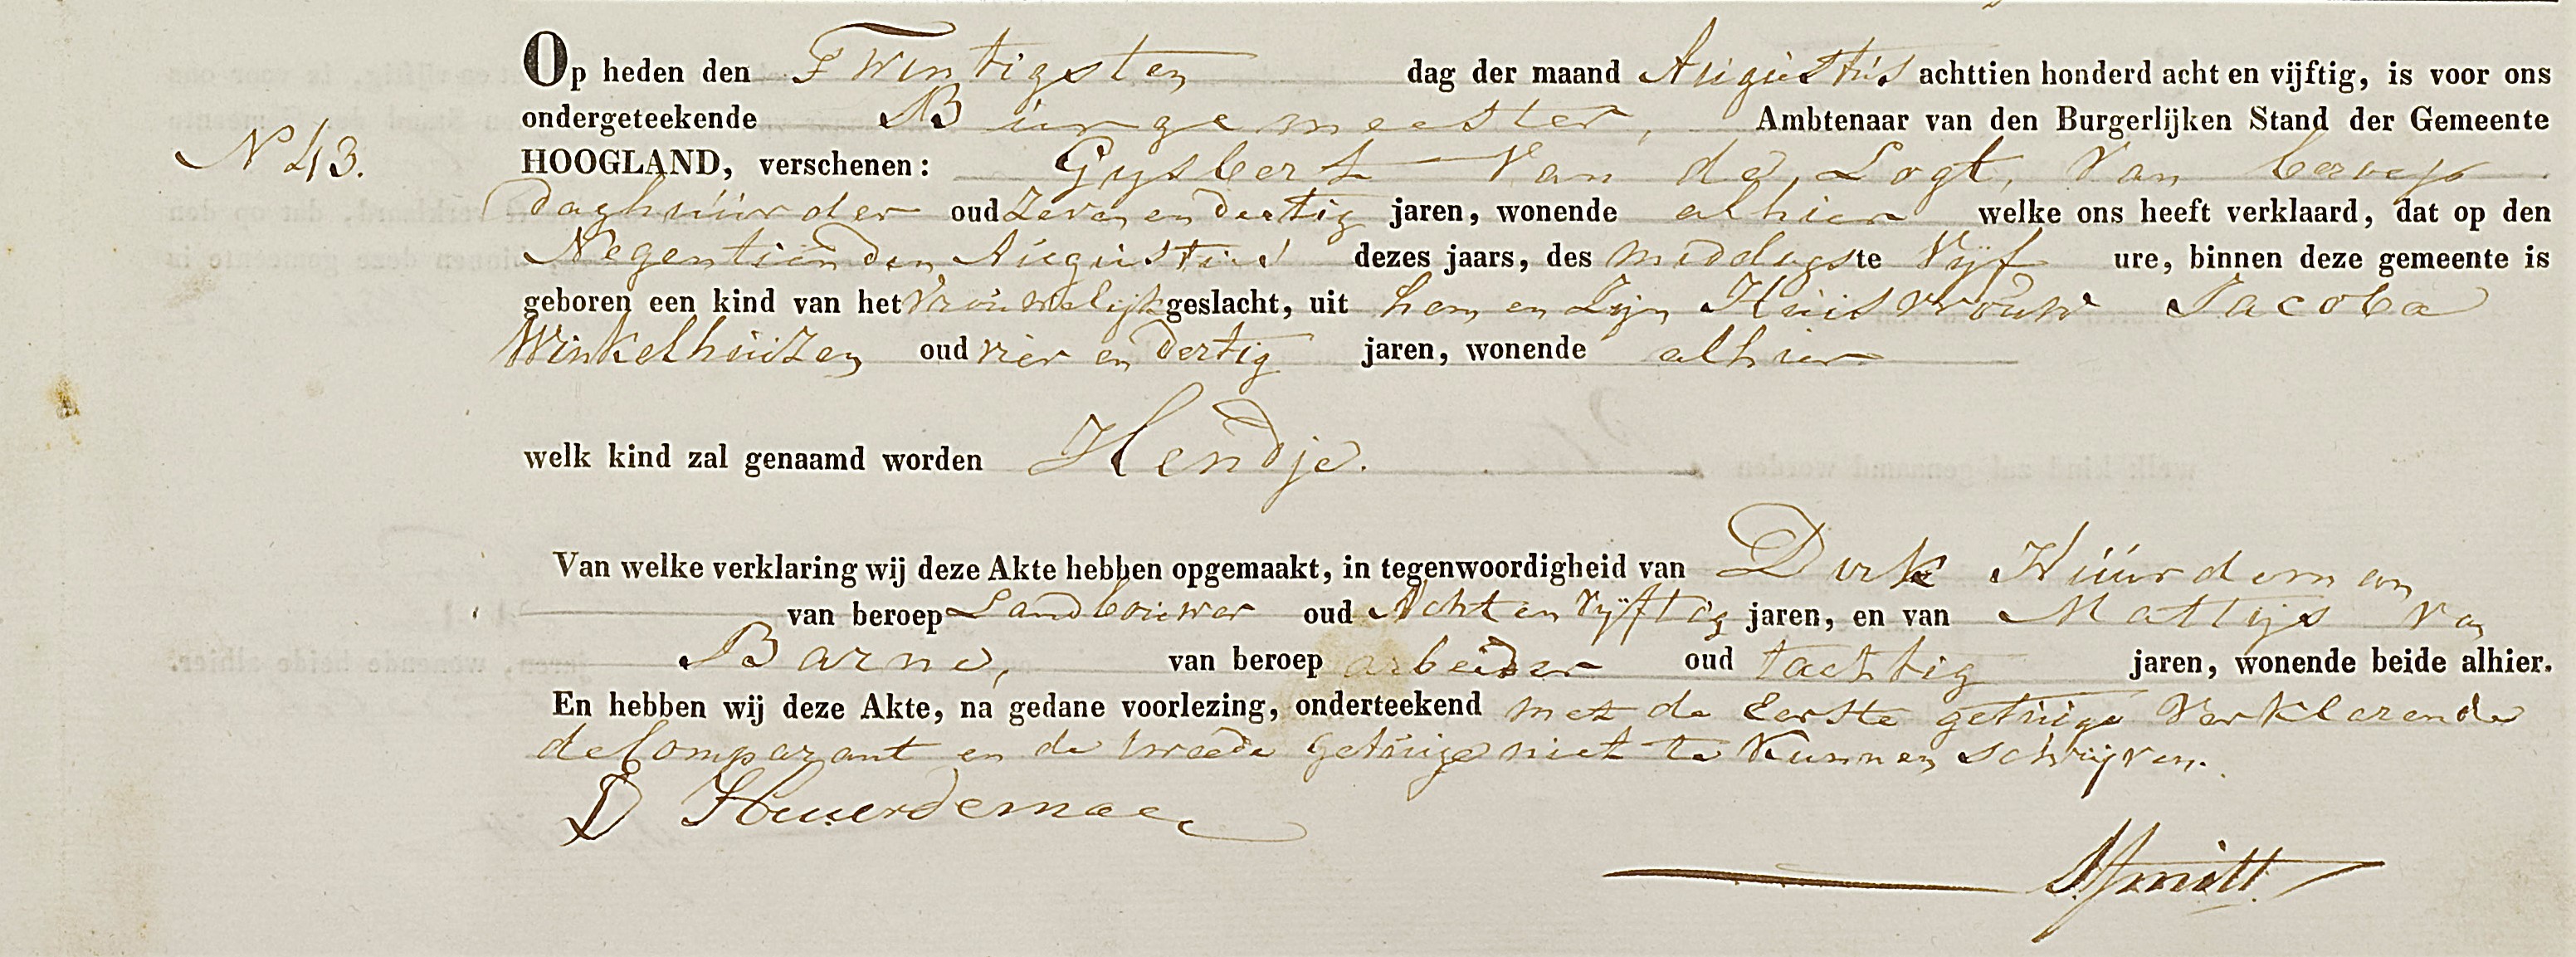 Op heden den Twintigsten dag der maand Augustus achttien honderd acht en vijftig, is voor ons
ondergeteekende Burgemeester, Ambtenaar van den Burgerlijken Stand der Gemeente
N 43. HOOGLAND, verschenen: Gysbert Van de Logt, Van beroep
daghuurder oud Zeven en dertig jaren, wonende alhier welke ons heeft verklaard, dat op den
Negentienden Augustus dezes jaars, des middagste Vijf ure, binnen deze gemeente is
geboren een kind van het Vrouwelijk geslacht, uit hem en Zijn Huisvrouw Jacoba
Winkelhuizen oud vier en dertig jaren, wonende alhier
welk kind zal genaamd worden Hendje.
Van welke verklaring wij deze Akte hebben opgemaakt, in tegenwoordigheid van Dirk Huurdeman
van beroep Landbouwer oud Acht en Vijftig jaren, en van Mattijs Van
Barne, van beroep arbeider oud tachtig jaren, wonende beide alhier.
En hebben wij deze Akte, na gedane voorlezing, onderteekend met de Eerste getuige Verklarende
de Comparant en de tweede getuige niet te Kunnen schrijven.
D Huerdeman